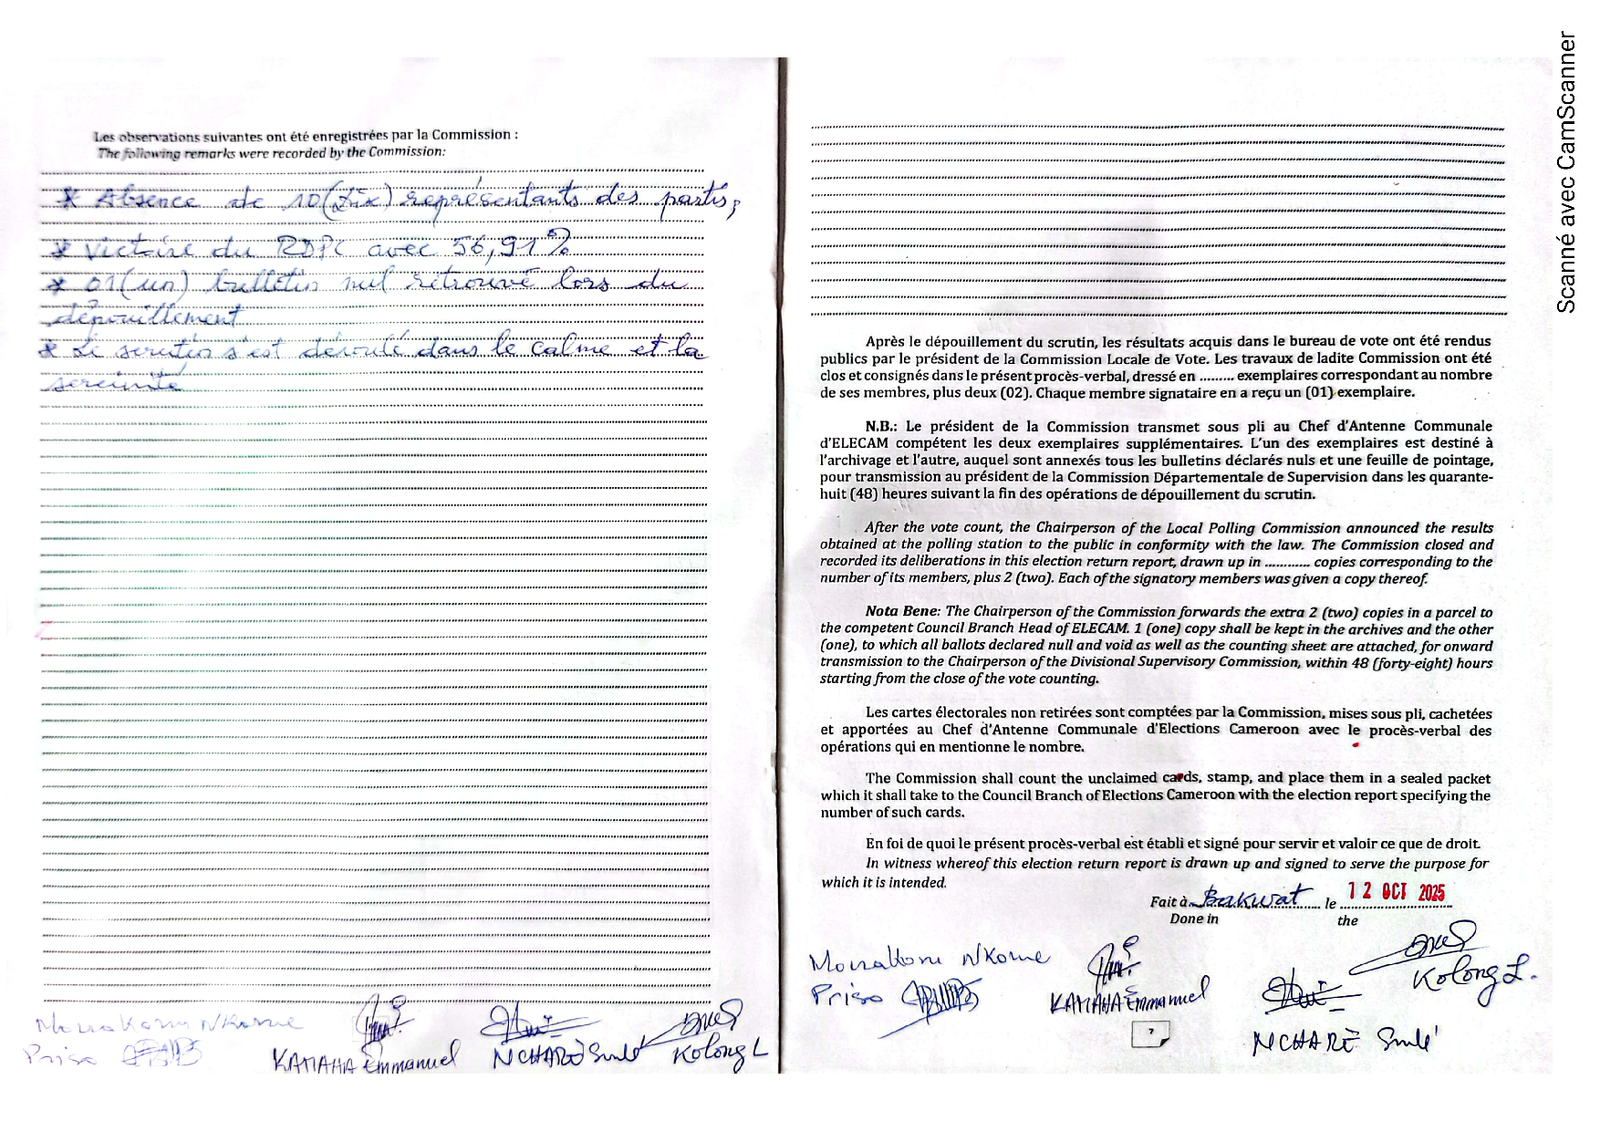 Les observations suivantes ont été enregistrées par la Commission :
The following remarks were recorded by the Commission:
* Absence de 10 (Dix) représentants des partis,
* Victoire du RDPC avec 56,91%
* 01 (un) bulletin nul retrouvé lors du
dépouillement
* Le scrutin s'est déroulé dans le calme et la
sereinité
Mouakoru Nkome
Priso
KAMAHA Emmanuel
NCHARÈ Smlé
Kolong L
Après le dépouillement du scrutin, les résultats acquis dans le bureau de vote ont été rendus
publics par le président de la Commission Locale de Vote. Les travaux de ladite Commission ont été
clos et consignés dans le présent procès-verbal, dressé en ......... exemplaires correspondant au nombre
de ses membres, plus deux (02). Chaque membre signataire en a reçu un (01) exemplaire.
N.B.: Le président de la Commission transmet sous pli au Chef d'Antenne Communale
d'ELECAM compétent les deux exemplaires supplémentaires. L'un des exemplaires est destiné à
l'archivage et l'autre, auquel sont annexés tous les bulletins déclarés nuls et une feuille de pointage,
pour transmission au président de la Commission Départementale de Supervision dans les quarante-
huit (48) heures suivant la fin des opérations de dépouillement du scrutin.
After the vote count, the Chairperson of the Local Polling Commission announced the results
obtained at the polling station to the public in conformity with the law. The Commission closed and
recorded its deliberations in this election return report, drawn up in ............ copies corresponding to the
number of its members, plus 2 (two). Each of the signatory members was given a copy thereof.
Nota Bene: The Chairperson of the Commission forwards the extra 2 (two) copies in a parcel to
the competent Council Branch Head of ELECAM. 1 (one) copy shall be kept in the archives and the other
(one), to which all ballots declared null and void as well as the counting sheet are attached, for onward
transmission to the Chairperson of the Divisional Supervisory Commission, within 48 (forty-eight) hours
starting from the close of the vote counting.
Les cartes électorales non retirées sont comptées par la Commission, mises sous pli, cachetées
et apportées au Chef d'Antenne Communale d'Elections Cameroon avec le procès-verbal des
opérations qui en mentionne le nombre.
The Commission shall count the unclaimed cards, stamp, and place them in a sealed packet
which it shall take to the Council Branch of Elections Cameroon with the election report specifying the
number of such cards.
En foi de quoi le présent procès-verbal est établi et signé pour servir et valoir ce que de droit.
In witness whereof this election return report is drawn up and signed to serve the purpose for
which it is intended.
Fait à Bakwat le 12 OCT 2025
Done in the
Mouakoru Nkome
Priso
KAMAHA Emmanuel
Kolong L.
NCHARÈ Smlé
7
Scanné avec CamScanner